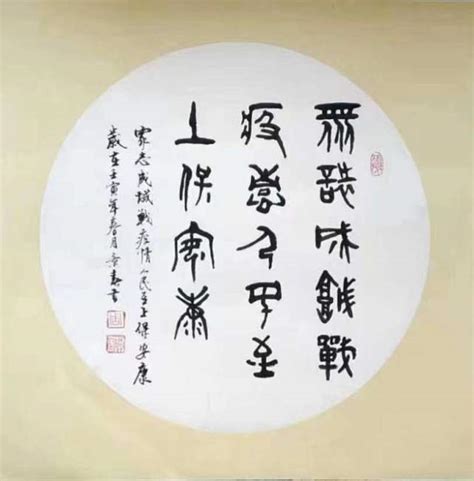 眾誌成城戰
疫情人民至
上保安康
眾志成城戰疫情人民至上保安康
歲在壬寅年春月書